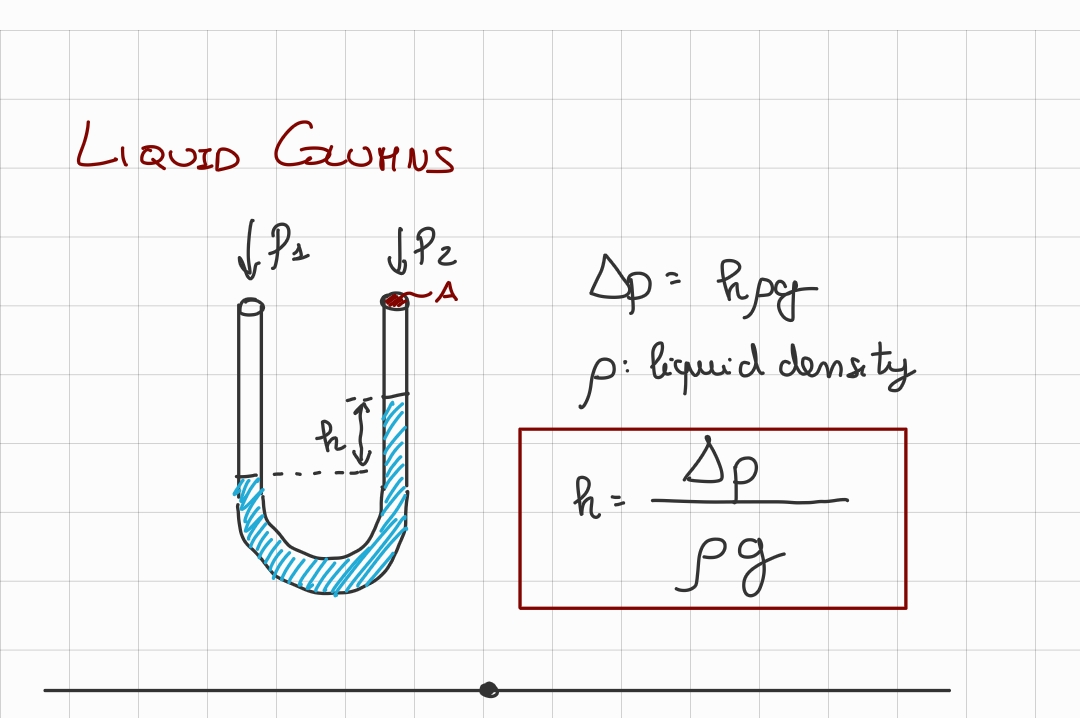 LIQUID COLUMNS
P1 P2
A
h
Δp = hρg
ρ: liquid density
h = Δp / ρg